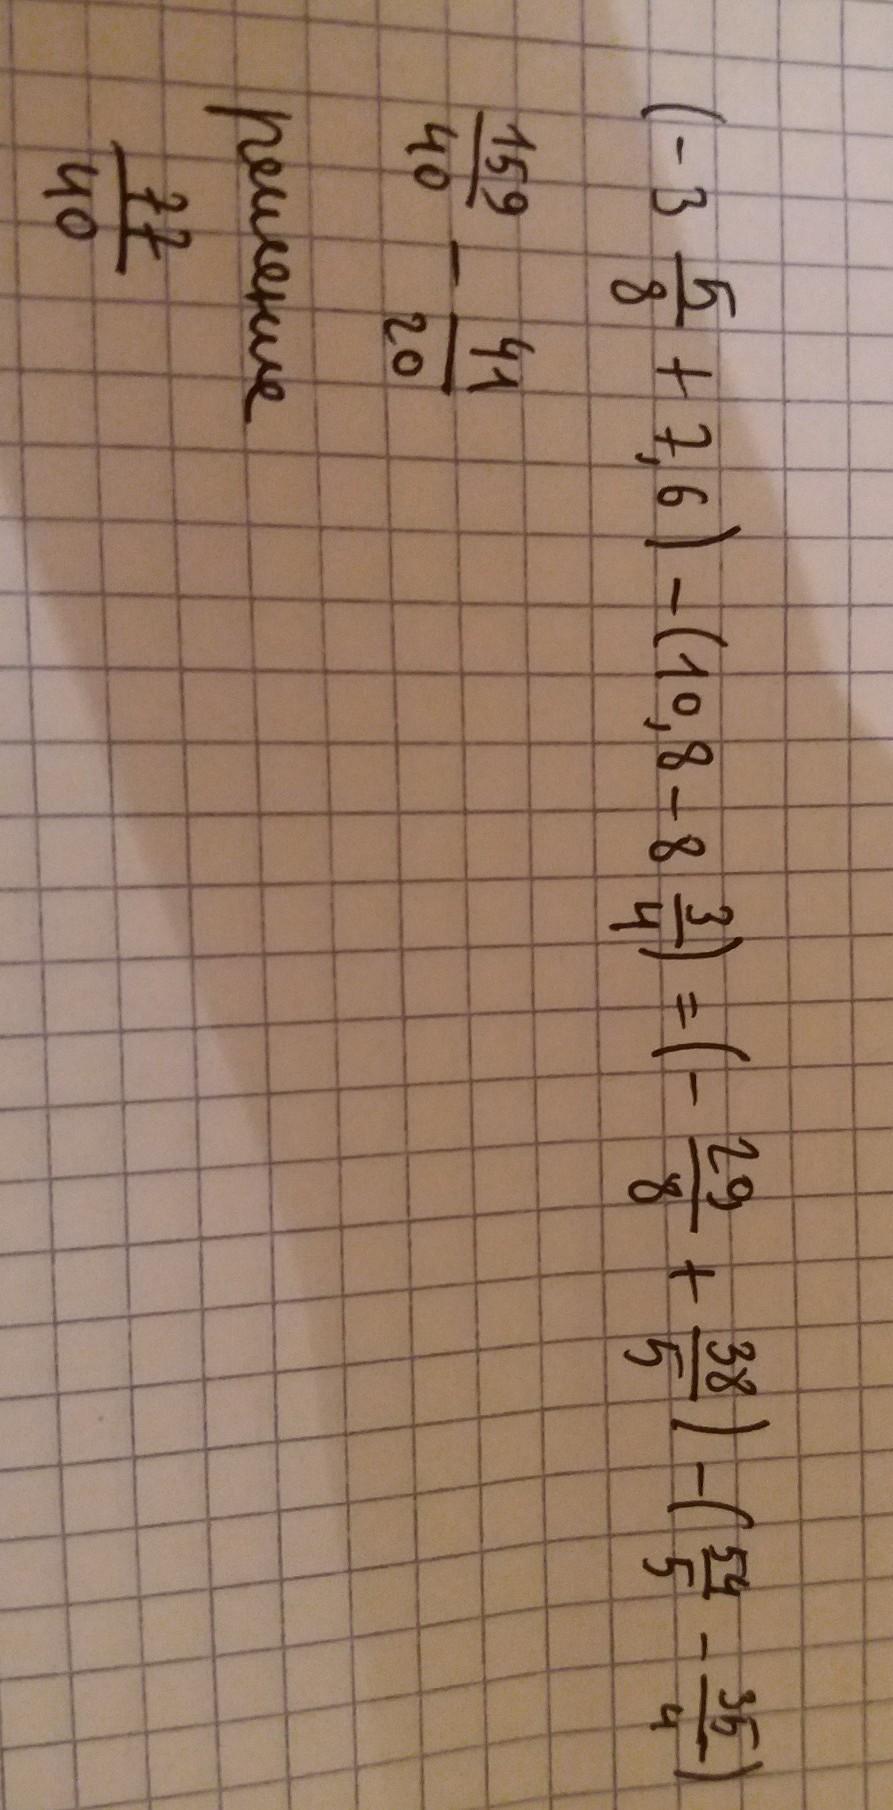 (-3 5/8 + 7,6) - (10,8 - 8 3/4) = (- 29/8 + 38/5) - (54/5 - 35/4)
159/40 - 41/20
решение
77/40